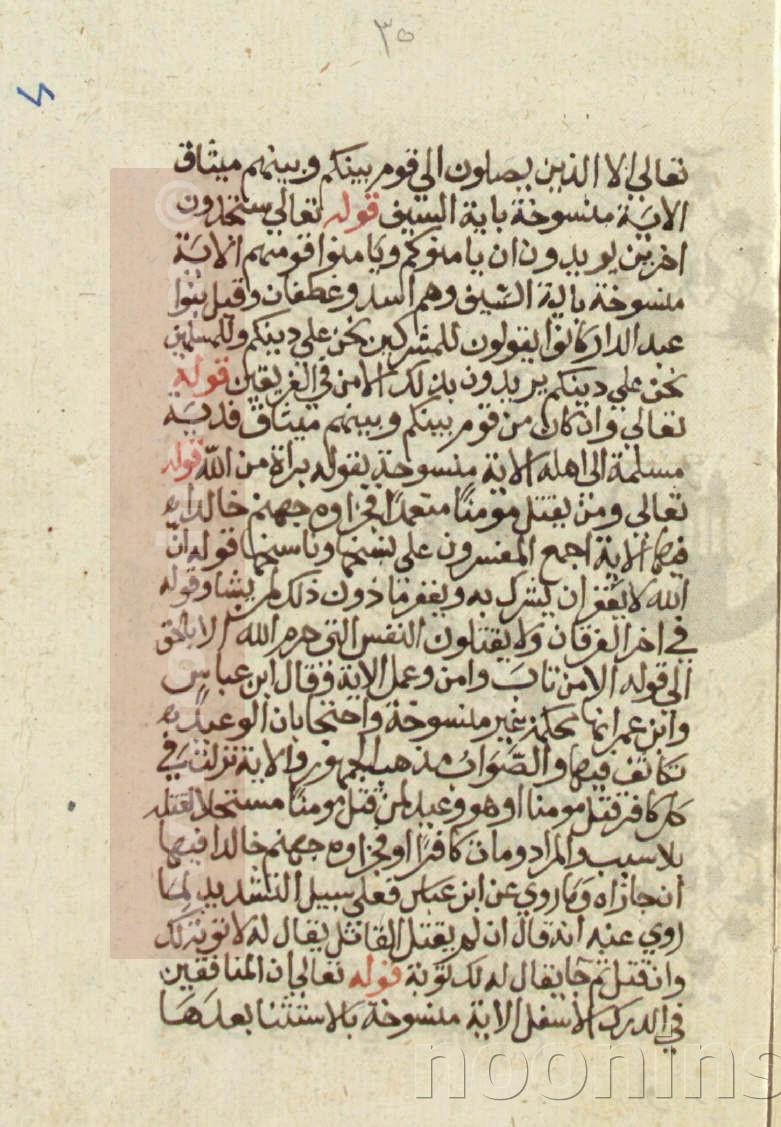 ٣٥
تعالي الا الذين يصلون الي قوم بينكم وبينهم ميثاق
الاية منسوخة باية السيف قوله تعالي ستجدون
اخرين يريدون ان يامنوكم ويامنوا قومهم الاية
منسوخة باية السيف وهم اسد وغطفان وقيل بنوا
عبد الدار كانوا يقولون للمشركين نحن علي دينكم وللمسلمين
نحن علي دينكم يريدون بذلك الامن في الفريقين قوله
تعالي وان كان من قوم بينكم وبينهم ميثاق فدية
مسلمة الى اهله الاية منسوخة بقوله براة من الله قوله
تعالى ومن يقتل مومنًا متعمدًا فجزاوه جهنم خالدا
فيها الاية اجمع المفسرون على نسخها وناسخها قوله انّ
الله لا يغفر ان يشرك به ويغفر ما دون ذلك لمن يشا وقوله
في اخر الفرقان ولا يقتلون النفس التي حرم الله الا بالحق
الى قوله الا من تابَ وامن وعمل الاية وقال ابن عباس
وابن عمر انها محكمة غير منسوخة واحتجا بان الوعيد
تكاثف فيها والصّواب مذهب الجمهور والاية نزلت في
كافر قتل مومنا او هو وعيد لمن قتل مومنًا مستحلا لقتله
بلا سبب والمراد ومات كافرًا او فجزاوه جهنم خالدا فيها
ان جازاه وما روي عن ابن عباس فعلي سبيل التشديد لما
روي عنه انه قال ان لم يقتل القاتل يقال له لا توبة لك
وان قتل ثم جا يقال له لك توبة قوله تعالي ان المنافقين
في الدرك الاسفل الاية منسوخة بالاستثنا بعدهَا
noonins